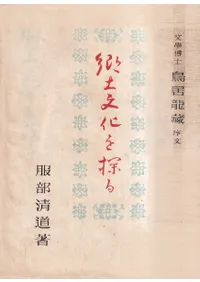 文學博士 鳥居龍藏 序文
郷土文化を探る
服部清道著